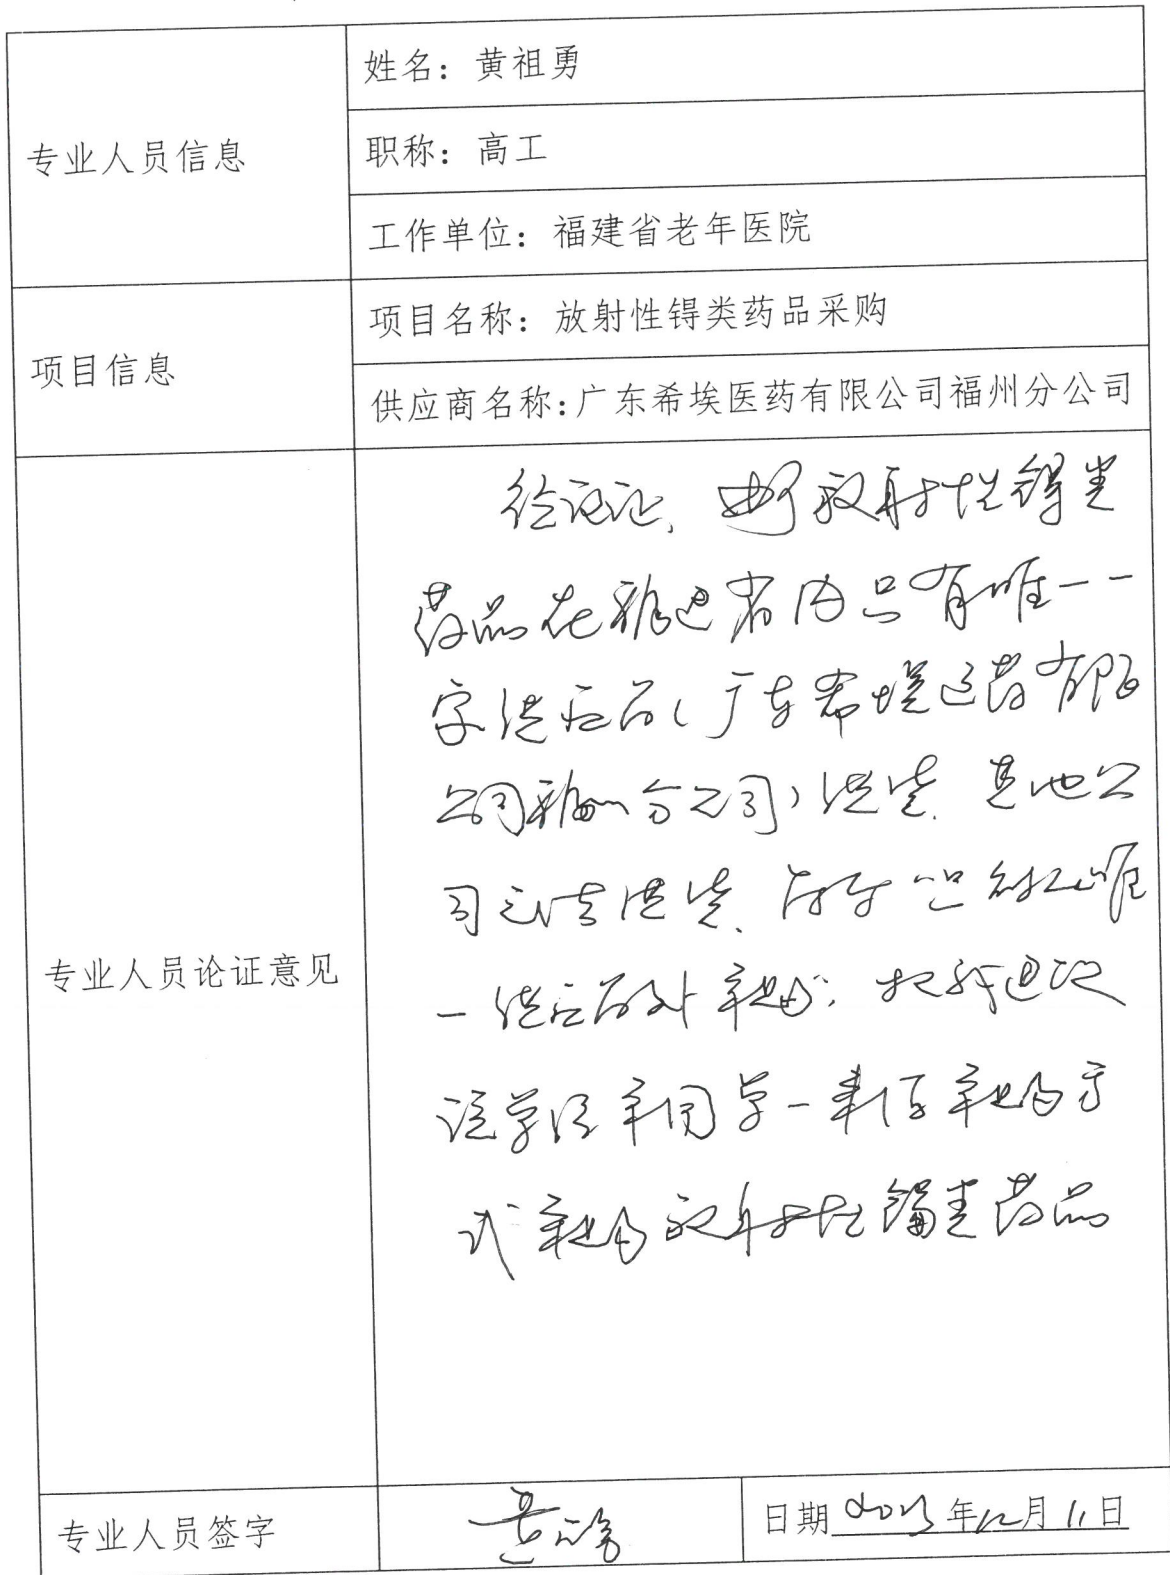 专业人员信息
姓名：黄祖勇
职称：高工
工作单位：福建省老年医院
项目信息
项目名称：放射性锝类药品采购
供应商名称:广东希埃医药有限公司福州分公司
专业人员论证意见
经论证，放射性锝类
药品在福建省内只有唯一一
家供应商（广东希埃医药有限
公司福州分公司）供货，其他公
司无法供货，只能从唯
一供应商处采购，
单一来源采购方
式采购放射性锝类药品
专业人员签字
日期 2023年12月11日